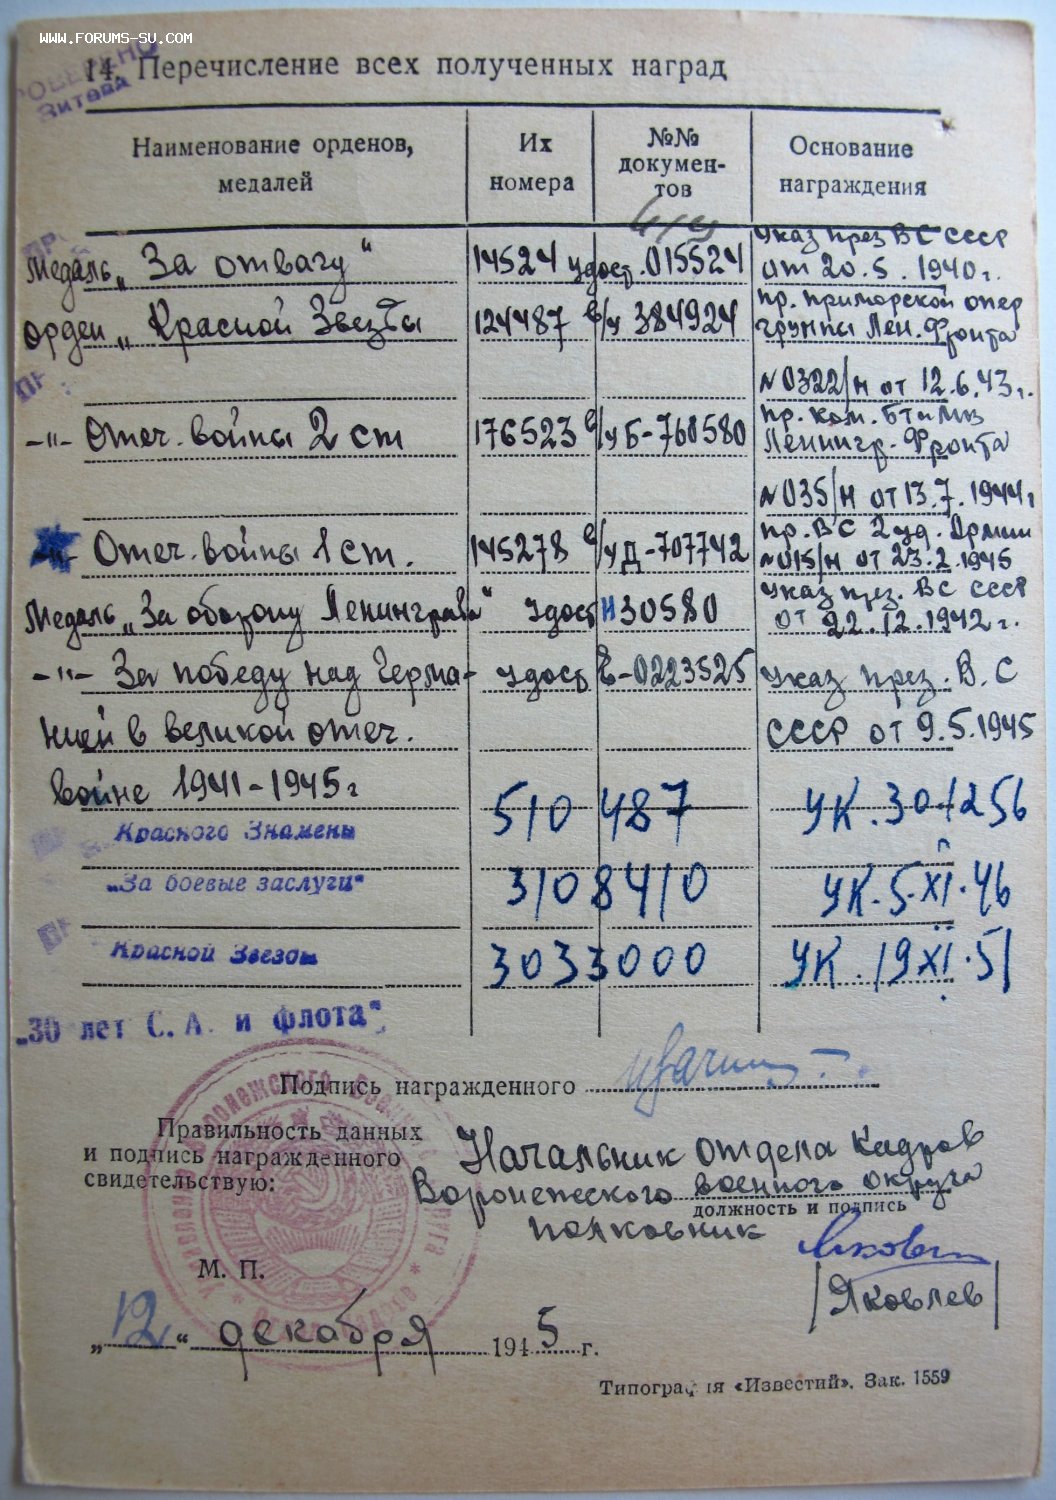 WWW.FORUMS-SU.COM
14. Перечисление всех полученных наград
Наименование орденов, медалей
Их номера
№№ докумен-тов
Основание награждения
Медаль „За отвагу“ 14524 удост. 015524 Указ през ВС СССР
от 20.5.1940г.
орден „Красной Звезды 124487 о/к 384924 пр. приморской опер
группы Лен. Фронта
№0322/н от 12.6.43г.
-"- Отеч. войны 2 ст 176523 о/к Б-760580 пр. ком. БТиМВ
Ленингр. Фронта
№035/н от 13.7.1944г
-"- Отеч. войны 1 ст. 145278 о/к Д-707742 пр. ВС 2 уд. Армии
№015/н от 23.2.1945
Медаль „За оборону Ленинграда" удост Н30580 Указ през. ВС СССР
от 22.12.1942г.
-"- За победу над Герма- удост 0223525 Указ През. В.С
нией в великой отеч. СССР от 9.5.1945
войне 1941-1945г
Красного Знамени 510487 УК.
„За боевые заслуги“ 3108410 УК. 5.XI.46
Красной Звезды 3033000 УК. 19 XI.51
„30 лет С. А. и флота“
Подпись награжденного
Правильность данных
и подпись награжденного
свидетельствую:
Начальник отдела Кадров
Воронежского военного округа
должность и подпись
полковник
/Яковлев/
М. П.
„12“ декабря 1945 г.
Типография «Известий». Зак. 1559